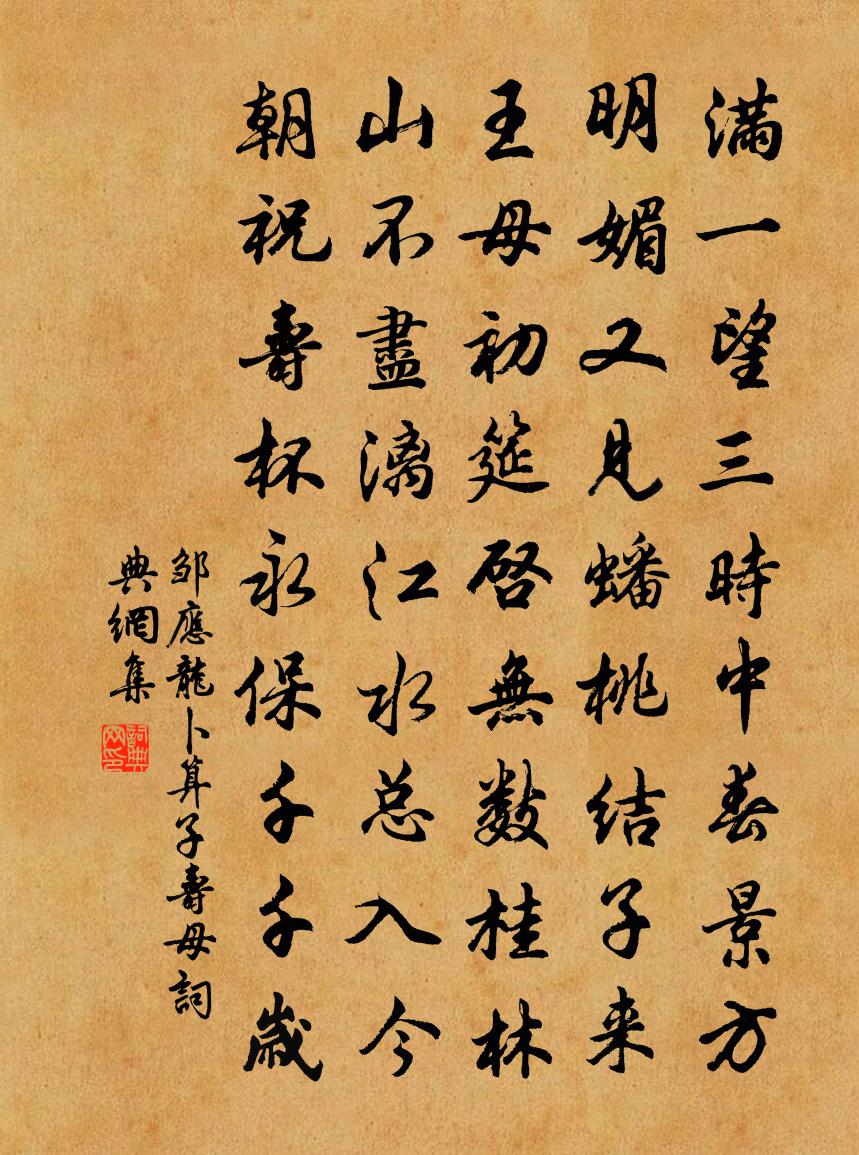 滿一望三時中春景方
明媚又見蟠桃結子来
王母初筵啓無數桂林
山不盡漓江水总入今
朝祝壽杯永保千千歲
邹應龍卜算子壽母詞
典網集
詞典网印